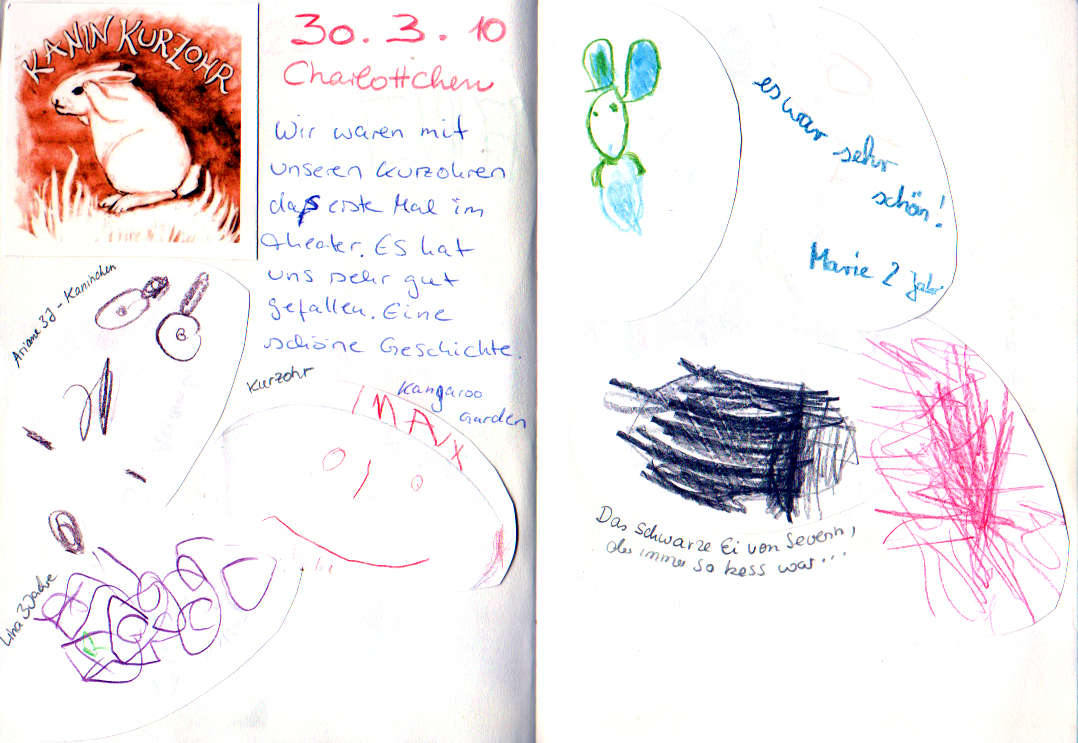 KANIN KURZOHR
30. 3. 10
Charlottchen
Wir waren mit
unseren Kurzohren
das erste Mal im
theater. Es hat
uns sehr gut
gefallen. Eine
schöne Geschichte.
Ariane 3J - Kaninchen
Kurzohr
Kangaroo
Garden
MAX
Lina 3 Jahre
es war sehr
schön!
Marie 2 Jahre
Das schwarze Ei von Severin,
der immer so kess war...